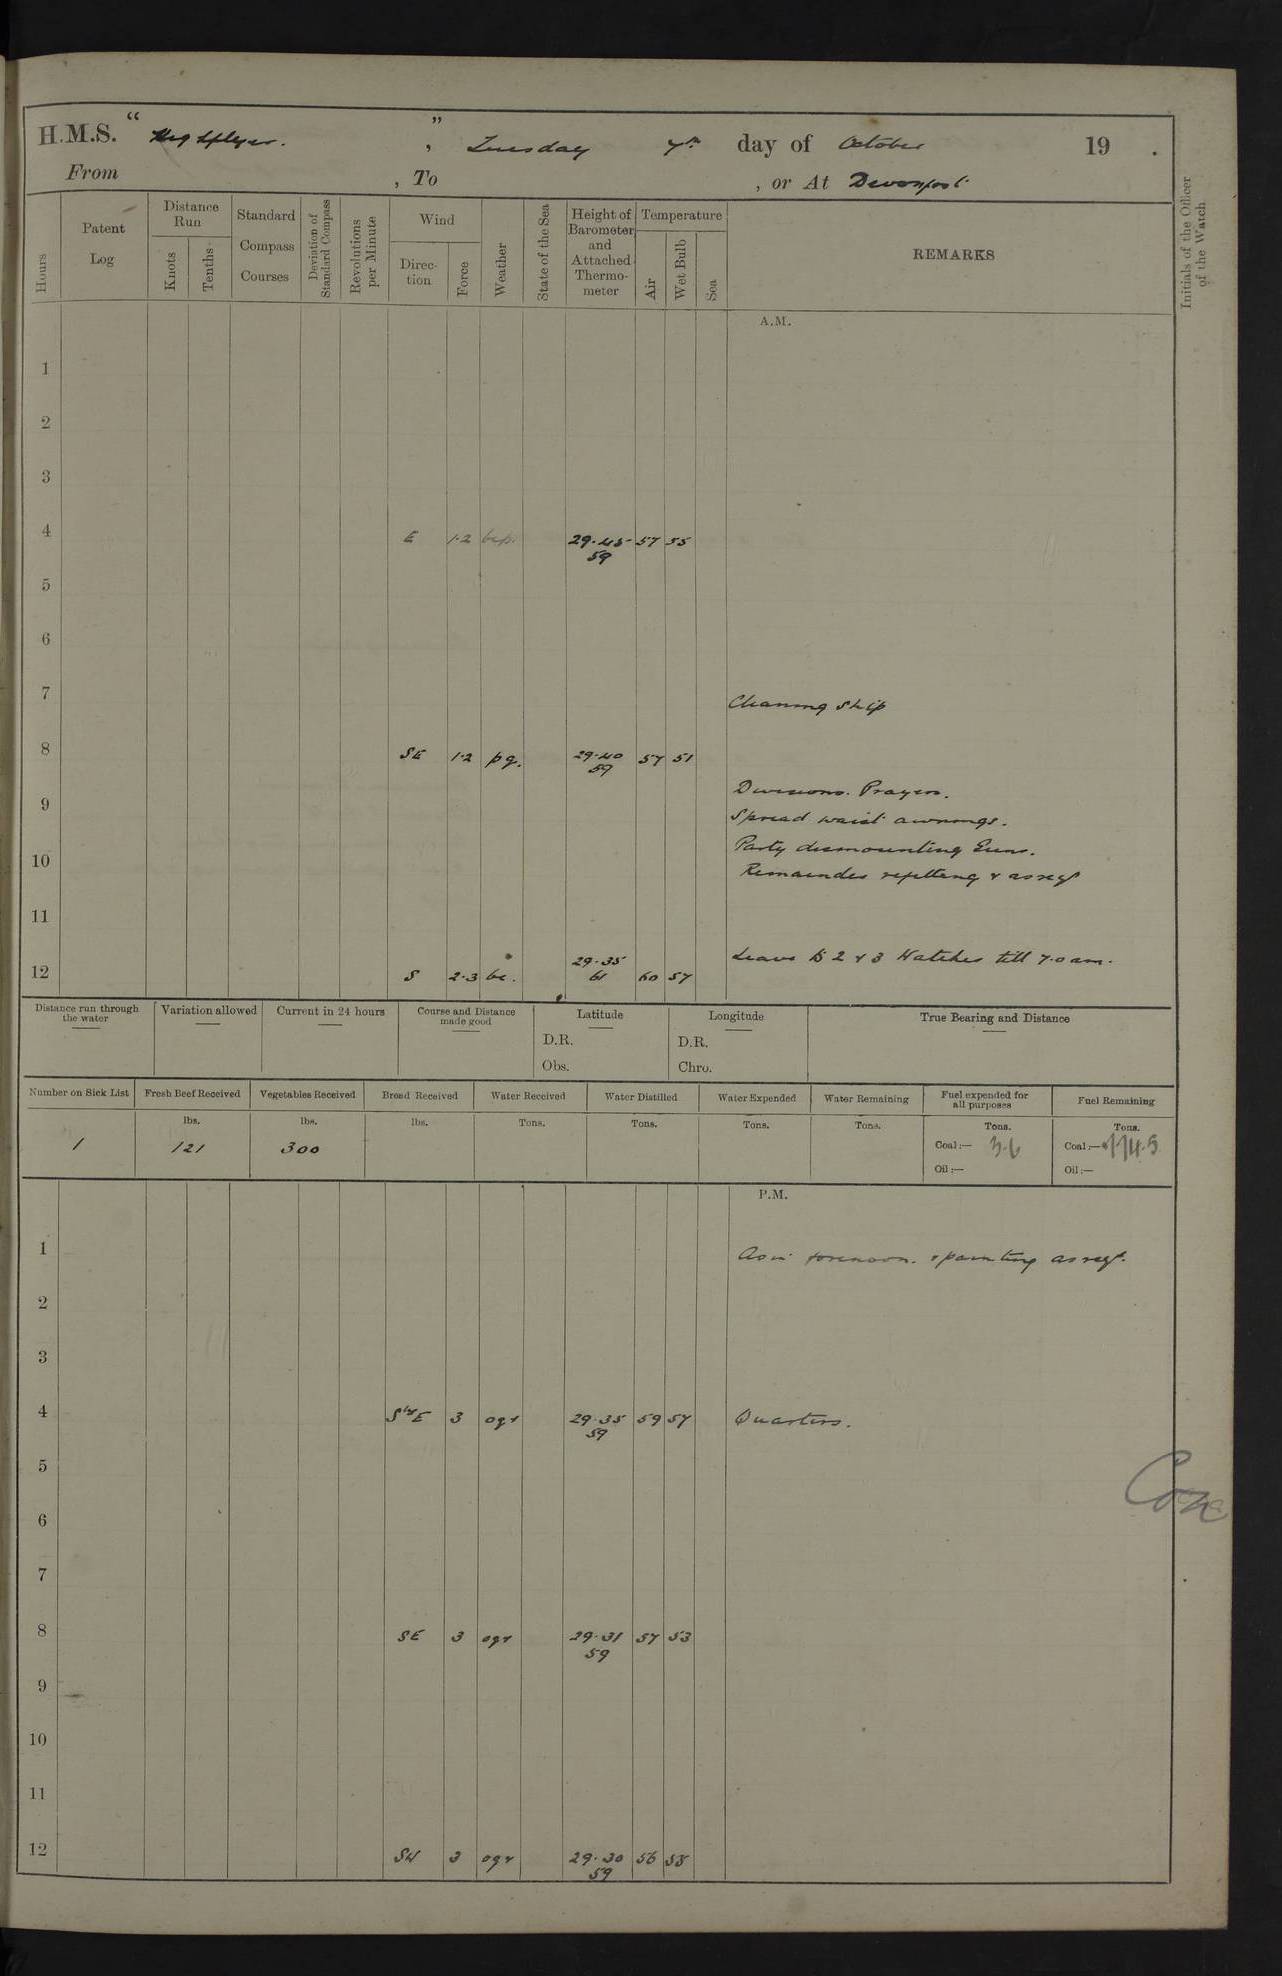 H.M.S. " Highflyer. ", Tuesday 7th day of October 19 .
From , To , or At Devonport
Hours
Patent Log
Distance Run
Knots
Tenths
Standard Compass Courses
Deviation of Standard Compass
Revolutions per Minute
Wind
Direction
Force
Weather
State of the Sea
Height of Barometer and Attached Thermometer
Temperature
Air
Wet Bulb
Sea
REMARKS
Initials of the Officer of the Watch
A.M.
1
2
3
4 E 1.2 bcp. 29.45 57 55
59
5
6
7 Cleaning Ship
8 SE 1.2 pq. 29.40 57 51
59
Divisions. Prayers.
9
Spread waist awnings.
Party dismounting Guns.
10
Remainder refitting & as reqd
11
Leave to 2 & 3 Watches till 7.0 am.
12 S 2.3 bc. 29.35 60 57
61
Distance run through the water
Variation allowed
Current in 24 hours
Course and Distance made good
Latitude
D.R.
Obs.
Longitude
D.R.
Chro.
True Bearing and Distance
Number on Sick List
Fresh Beef Received
Vegetables Received
Bread Received
Water Received
Water Distilled
Water Expended
Water Remaining
Fuel expended for all purposes
Fuel Remaining
lbs. lbs. lbs. Tons. Tons. Tons. Tons. Tons. Tons.
1 121 300
Coal:— 3.6
Oil:—
Coal:— 774.5
Oil:—
P.M.
1 As in forenoon. & painting as reqd.
2
3
4 SbyE 3 ogr 29.35 59 57 Quarters.
59
5
6
7
8 SE 3 ogr 29.31 57 53
59
9
10
11
12 SW 3 ogr 29.30 56 55
59